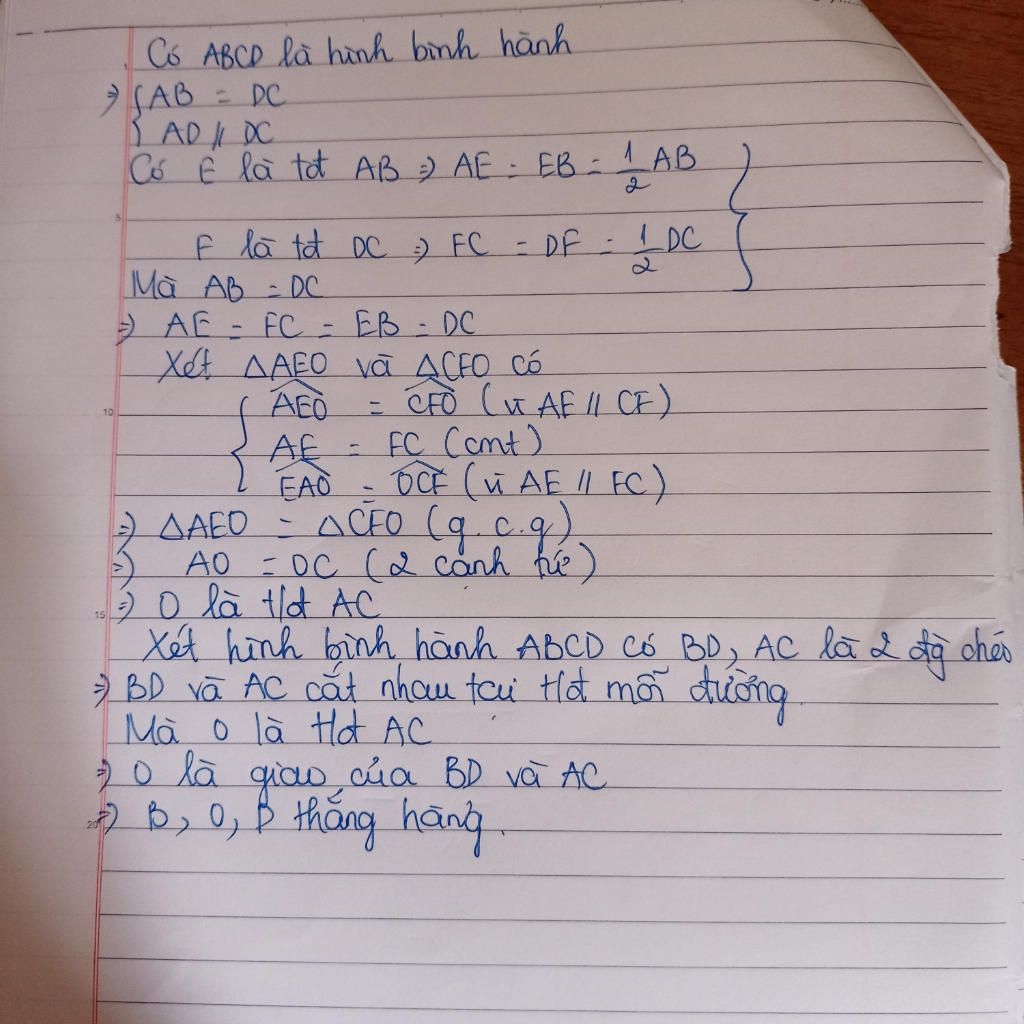 Có ABCD là hình bình hành
⇒ { AB = DC
AD // DC
Có E là tđ AB ⇒ AE = EB = 1/2 AB
5
F là tđ DC ⇒ FC = DF = 1/2 DC
Mà AB = DC
⇒ AE = FC = EB = DC
Xét △AEO và △CFO có
10 { AEO = CFO (vì AE // CF)
AE = FC (cmt)
EAO = OCF (vì AE // FC)
⇒ △AEO = △CFO (g.c.g)
⇒ AO = OC (2 cạnh tứ)
15 ⇒ O là t/đ AC
Xét hình bình hành ABCD có BD, AC là 2 đg chéo
⇒ BD và AC cắt nhau tại t/đ mỗi đường.
Mà O là t/đ AC
⇒ O là giao của BD và AC
20 ⇒ B, O, D thẳng hàng.